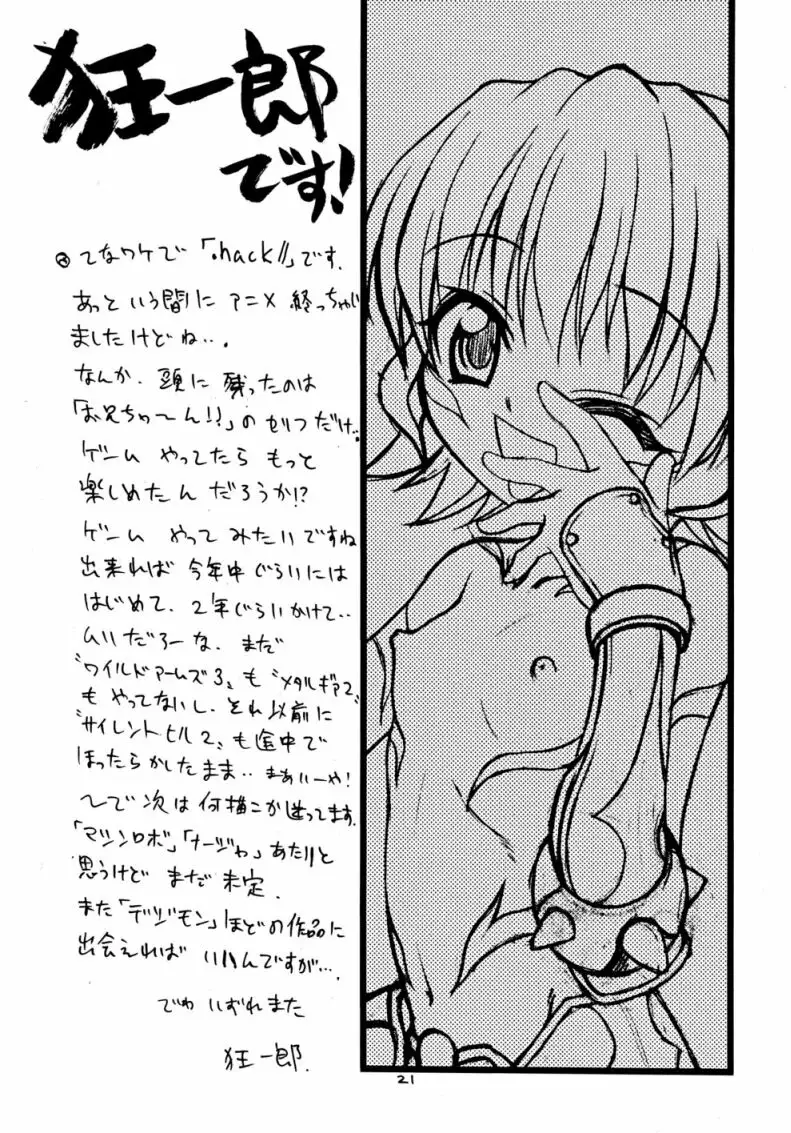 狂一郎
です!
てなワケで「.hack//」です.
あっという間にアニメ終っちゃい
ましたけどね….
なんか.頭に残ったのは
「お兄ちゃ〜ん!!」のセリフだけ。
ゲームやってたらもっと
楽しめたんだろうか!?
ゲームやってみたいですね
出来れば今年中ぐらいには
はじめて.2年ぐらいかけて‥
ムリだろーな.まだ
〝ワイルドアームズ3〟も〝メタルギア2〟
もやってないし.それ以前に
〝サイレントヒル2〟も途中で
ほったらかしたまま‥まぁいーや!
〜で次は何描こか迷ってます.
「マシンロボ」「ナージャ」あたりと
思うけどまだ未定.
また「デジモン」ほどの作品に
出会えればいいんですが….
でわいずれまた
狂一郎.
21